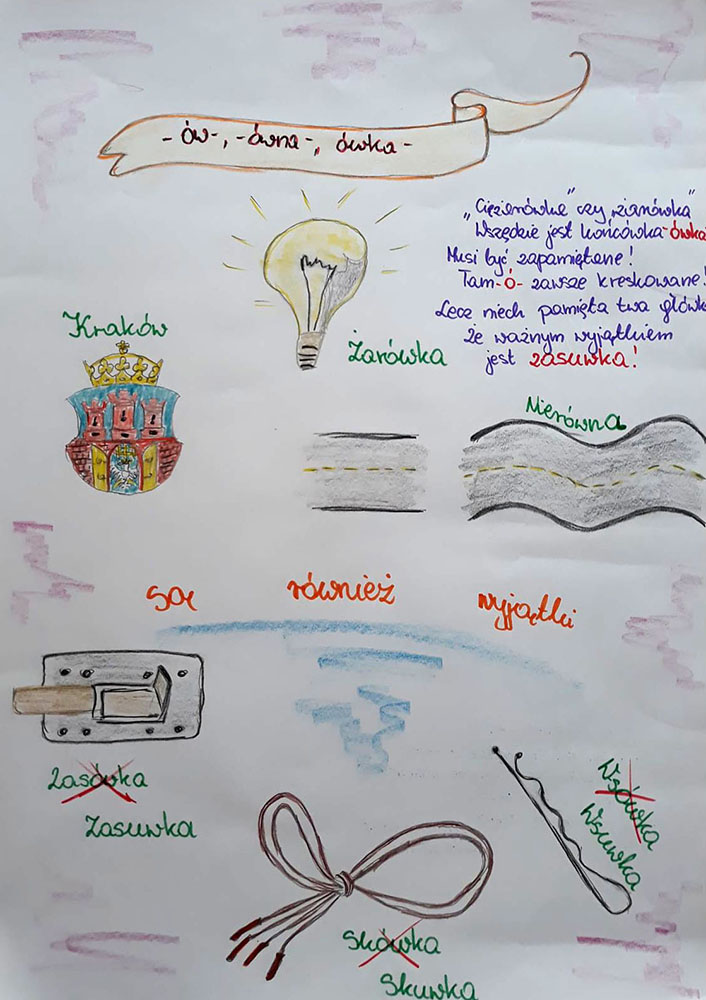 - ów-, -ówna-, ówka -
„Ciężarówka" czy „zianówka"
Wszędzie jest końcówka -ówka
Musi być zapamiętane!
Tam -Ó- zawsze kreskowane!
Lecz niech pamięta twa główka
Że ważnym wyjątkiem
jest zasuwka!
Kraków
Żarówka
Nierówna
Są również wyjątki
Zasówka
Zasuwka
Wsówka
Wsuwka
Skówka
Skuwka